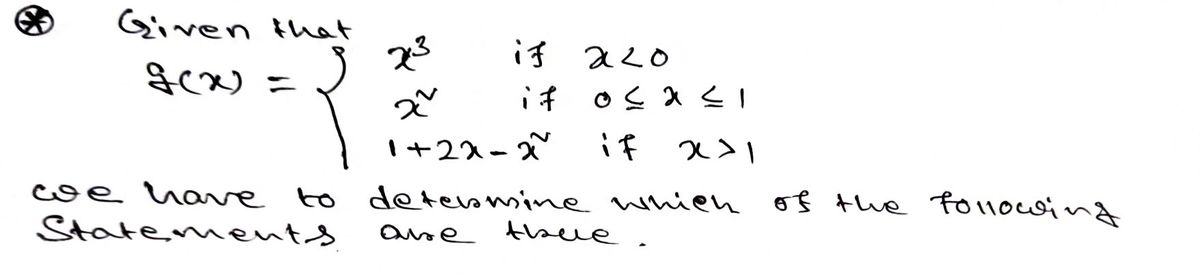 ⊛ Given that
f(x) = { x³ if x<0
x² if 0 ≤ x ≤ 1
1+2x-x² if x>1
we have to determine which of the following
Statements are true.